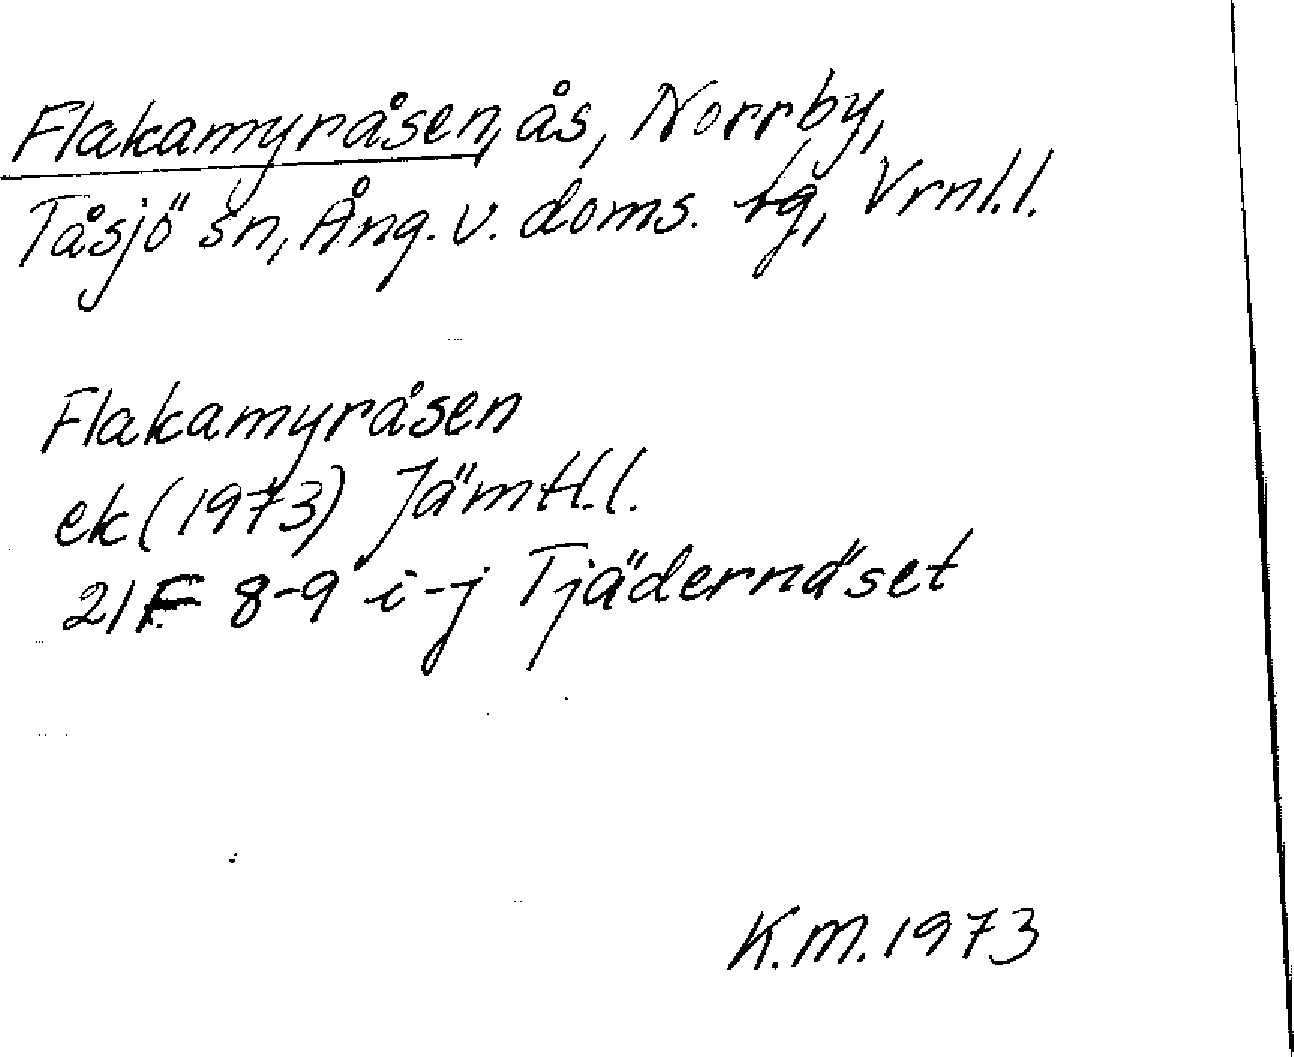 Flakamyråsen, ås, Norrby,
Tåsjö sn, Ång. v. doms. tg, Vrnl.l.
Flakamyråsen
ek (1973) Jämtl.l.
21F 8-9 i-j Tjädernäset
K.M. 1973